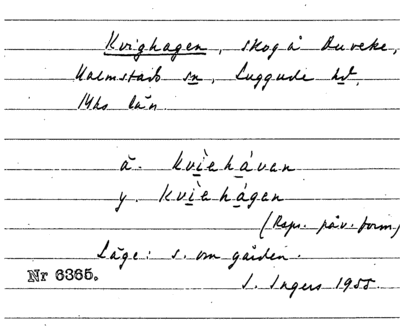 Kvighagen, skog å Duveke,
Halmstads sn, Luggude hd,
Mhs län.
ä. kvìehávan
y. kvìehágen
(Rspr. påv. form)
Läge: s. om gården.
Nr 6365.
I. Ingers 1955